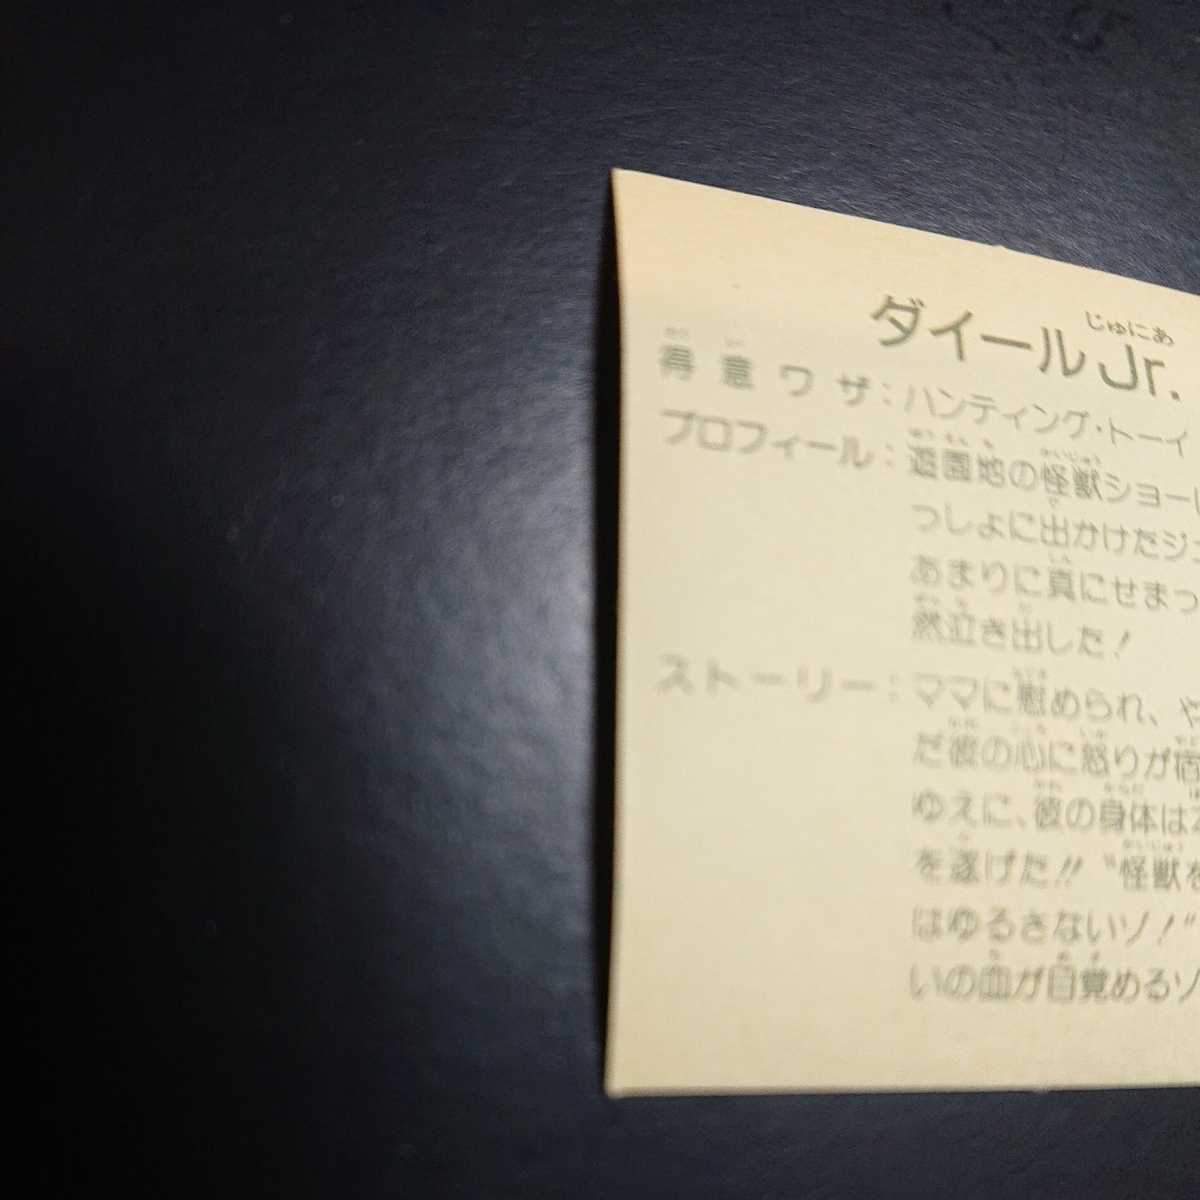 ダイールJr.
じゅにあ
得意ワザ：ハンティング・トーイ
プロフィール：遊園地の怪獣ショーに
っしょに出かけたジ
あまりに真にせまっ
然泣き出した！
ストーリー：ママに慰められ、や
だ彼の心に怒りが宿
ゆえに、彼の身体は
を遂げた!!〝怪獣を
はゆるさないゾ！〟
いの血が目覚めるゾ